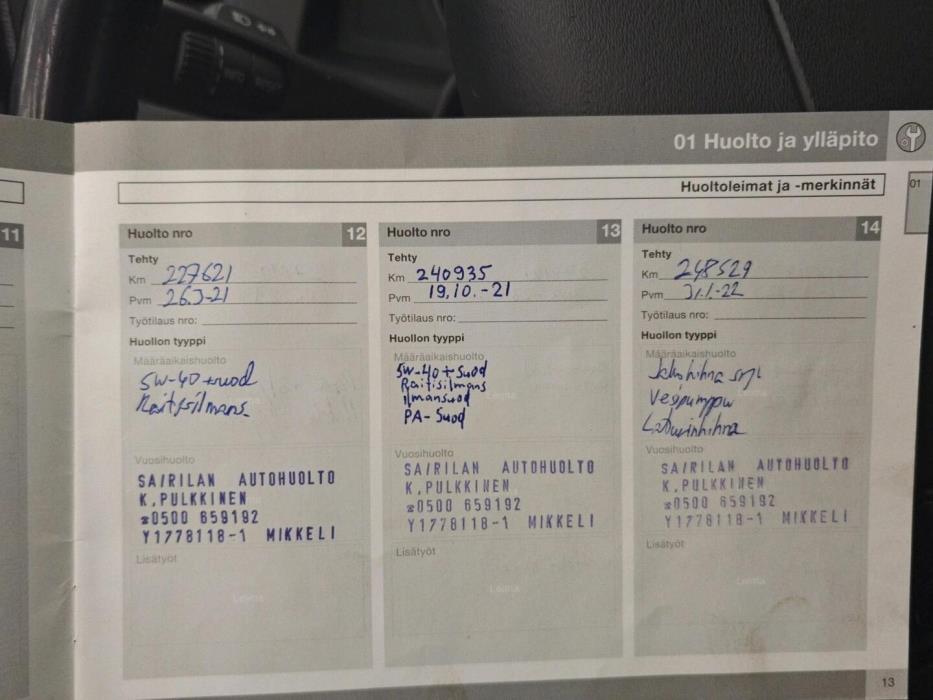 01 Huolto ja ylläpito
Huoltoleimat ja -merkinnät
01
11
Huolto nro 12
Tehty
Km 227621
Pvm 26.3-21
Työtilaus nro:
Huollon tyyppi
Määräaikaishuolto
5W-40+suod
Raitisilmans
Vuosihuolto
SAIRILAN AUTOHUOLTO
K.PULKKINEN
☎0500 659192
Y1778118-1 MIKKELI
Lisätyöt
Leima
Huolto nro 13
Tehty
Km 240935
Pvm 19.10.-21
Työtilaus nro:
Huollon tyyppi
Määräaikaishuolto
5W-40+Suod
Raitisilmans
ilmansuod
PA-Suod
Vuosihuolto
SAIRILAN AUTOHUOLTO
K.PULKKINEN
☎0500 659192
Y1778118-1 MIKKELI
Lisätyöt
Leima
Huolto nro 14
Tehty
Km 248529
Pvm 31.1-22
Työtilaus nro:
Huollon tyyppi
Määräaikaishuolto
Jakohihna
Vesipumppu
Laturinhihna
Vuosihuolto
SAIRILAN AUTOHUOLTO
K.PULKKINEN
☎0500 659192
Y1778118-1 MIKKELI
Lisätyöt
Leima
13